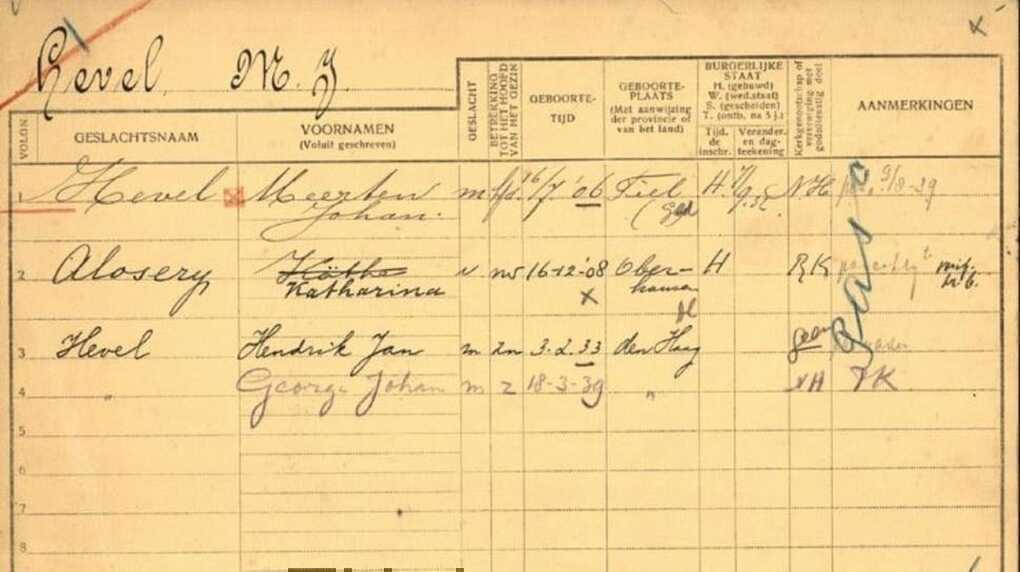 Hevel, M. J.
VOLGN. GESLACHTSNAAM VOORNAMEN (Voluit geschreven) GESLACHT BETREKKING TOT HET HOOFD VAN HET GEZIN GEBOORTE-TIJD GEBOORTE-PLAATS (Met aanwijzing der provincie of van het land) BURGERLIJKE STAAT H. (gehuwd) W. (wed.staat) S. (gescheiden) T. (ontb. na 5 j.) Tijd. de inschr. Verander. en dag-teekening Kerkgenootschap of vereeniging met godsdienstig doel AANMERKINGEN
1 Hevel Meerten Johan. m hfd. 16/7 '06 Tiel (Gld H. N.H. 9/8-39
2 Alosery Käthe Katharina v 16-12-'08 Oberhausen H R K
3 Hevel Hendrik Jan m zn 3-2-33 den Haag geen
4 " George Johan m z 18-3-39 " NH PK
5
6
7
8
x
pas